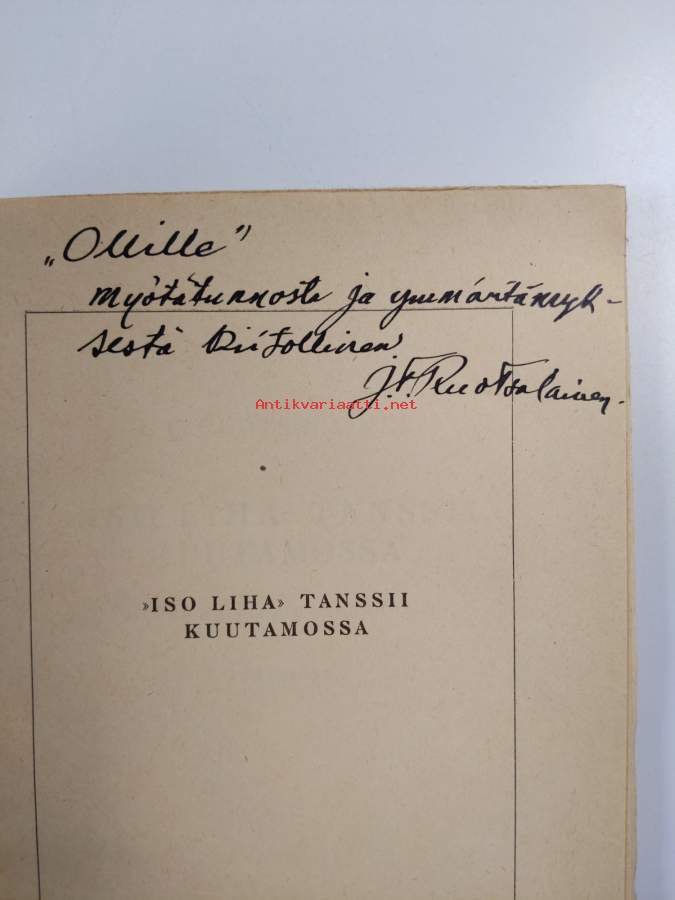 „Ollille”
myötätunnosta ja ymmärtämyk-
sestä kiitollinen
J.F. Ruotsalainen.
Antikvariaatti.net
»ISO LIHA» TANSSII
KUUTAMOSSA